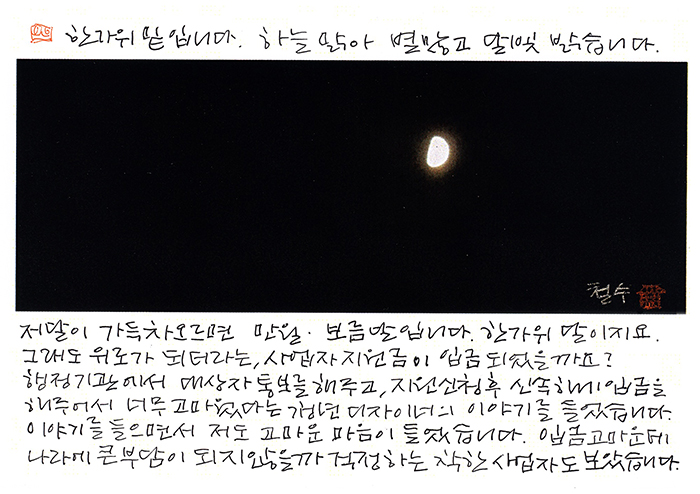 한가위 밑입니다. 하늘 맑아 별 많고 달빛 밝습니다.
철수
저 달이 가득 차오르면 만월. 보름달입니다. 한가위 달이지요.
그래도 위로가 되더라는, 사업자지원금이 입금되었을까요?
행정기관에서 대상자통보를 해주고, 지원신청후 신속하게 입금을
해주어서 너무 고마웠다는 청년 디자이너의 이야기를 들었습니다.
이야기를 들으면서 저도 고마운 마음이 들었습니다. 입금 고마운데
나라에 큰 부담이 되지않을까 걱정하는 착한 사업자도 보았습니다.